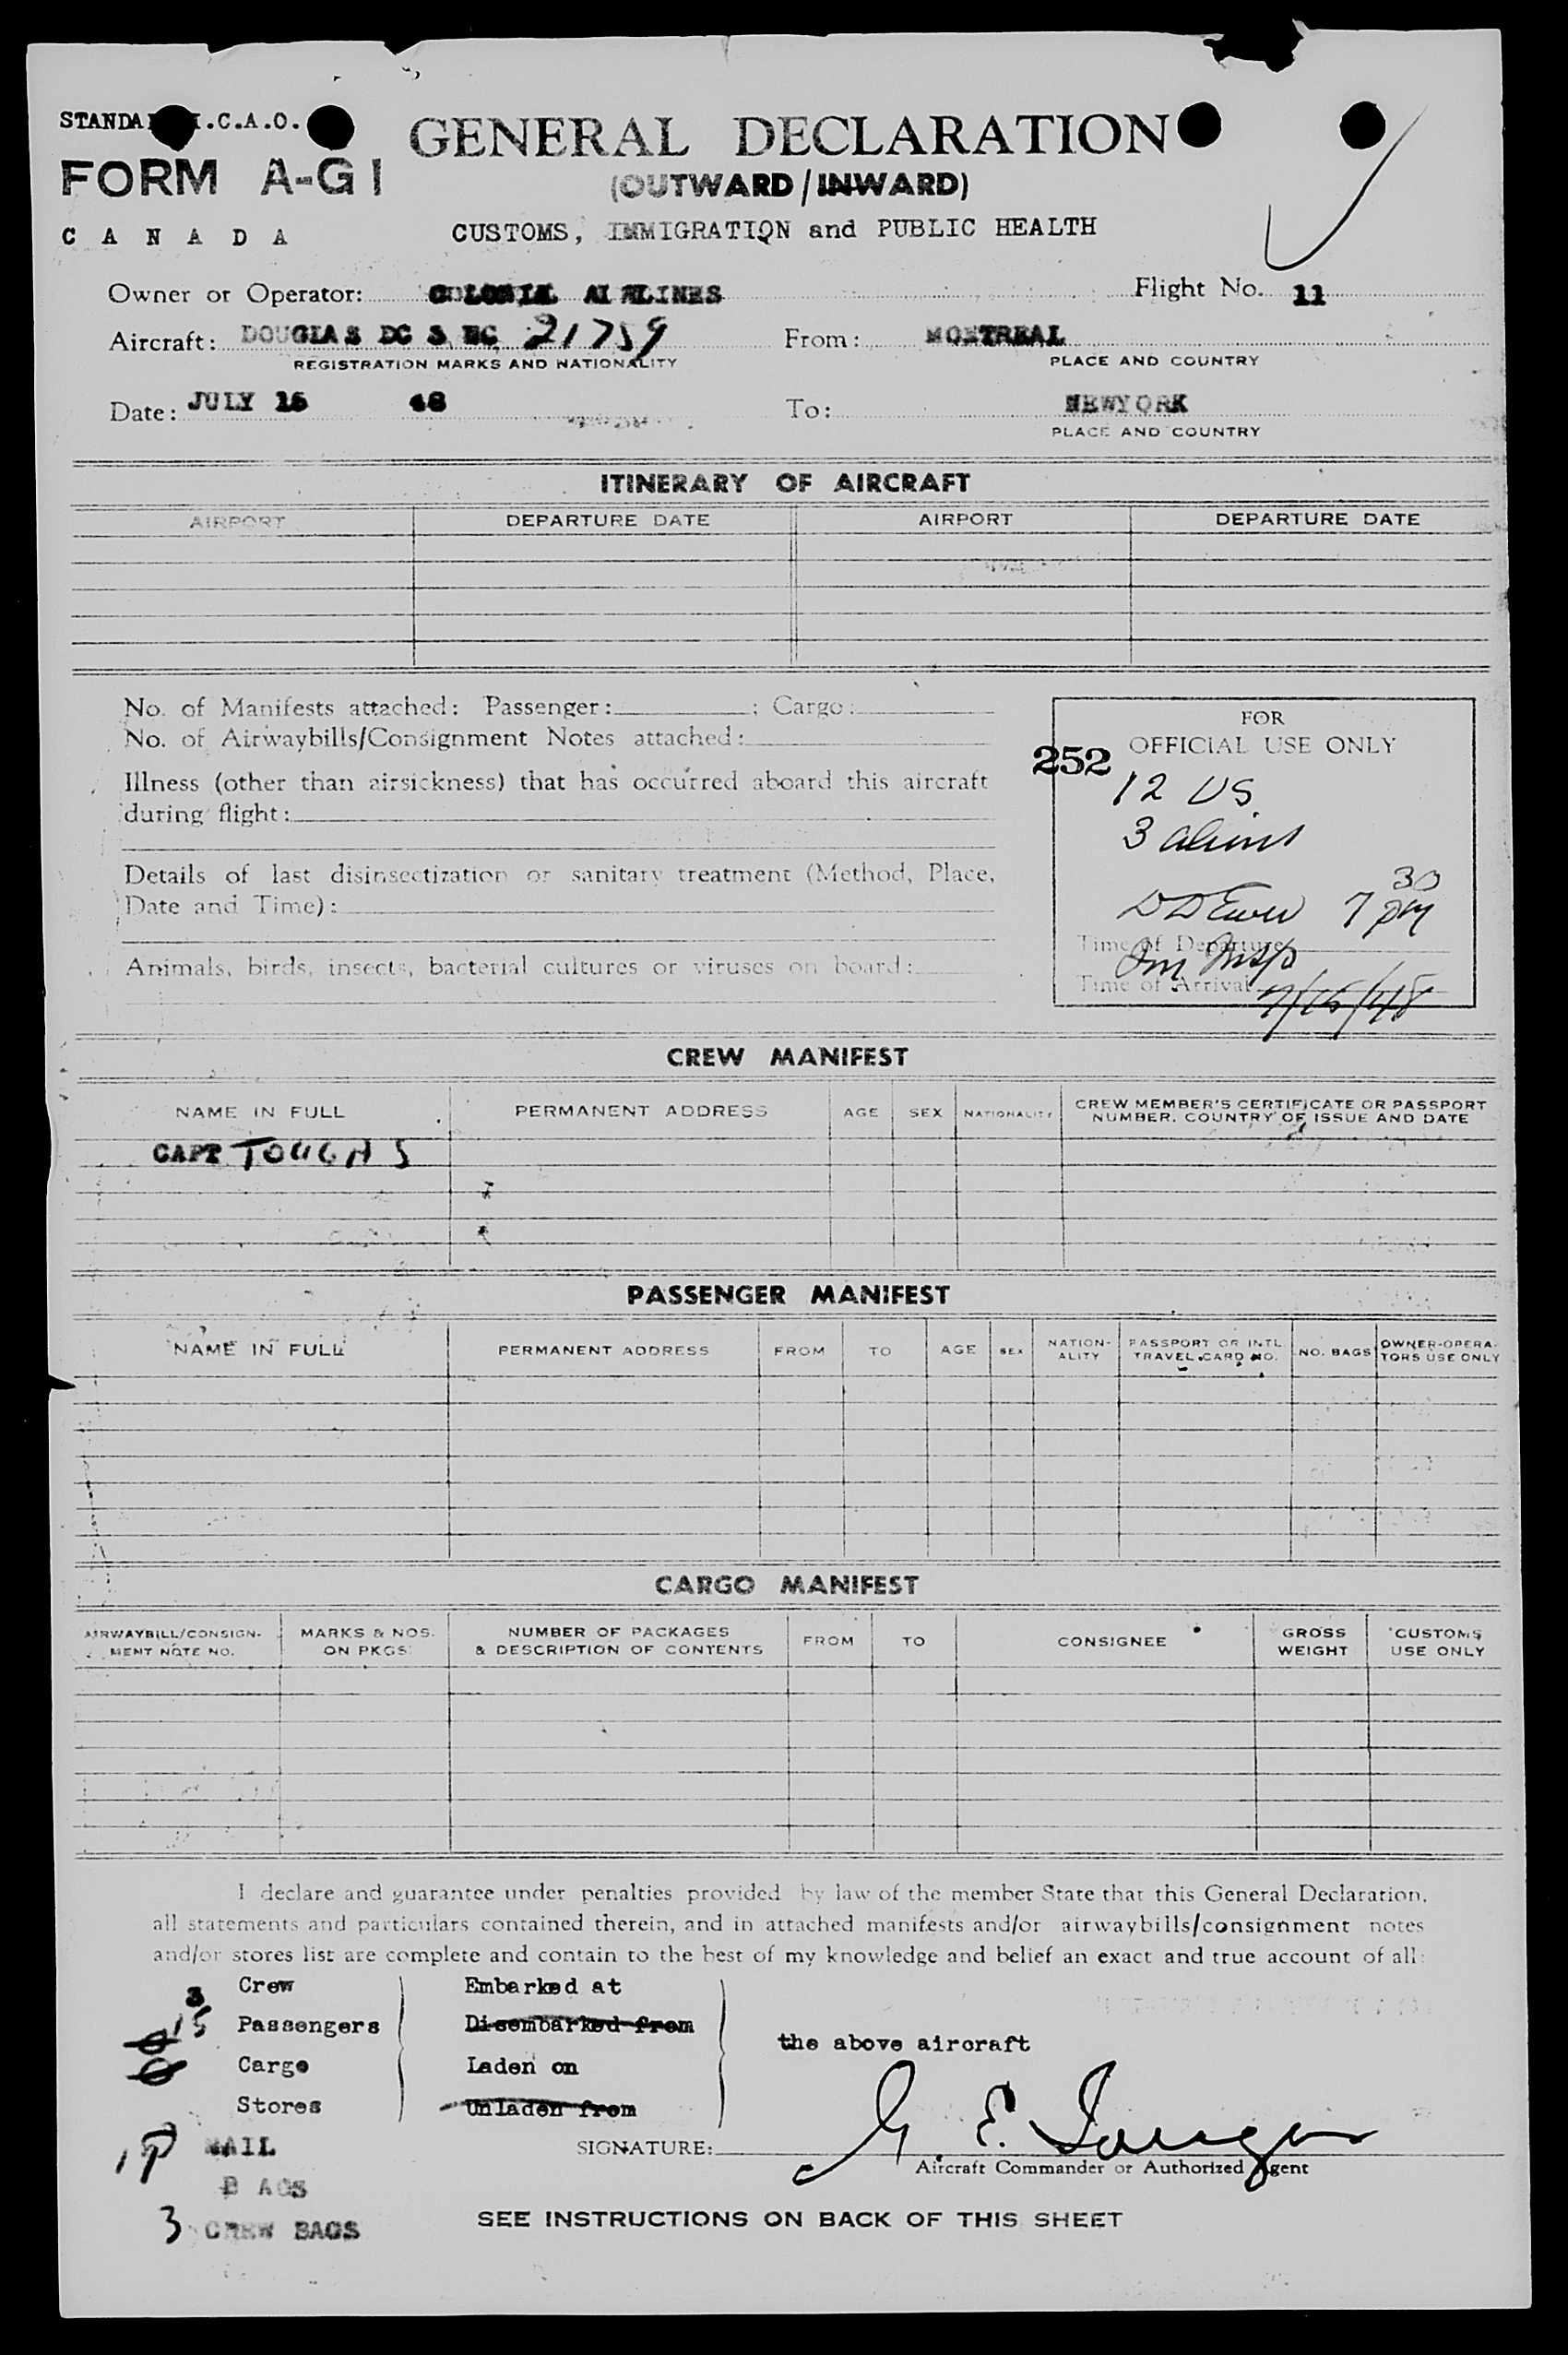 STANDA .C.A.O.
FORM A-G1
CANADA
GENERAL DECLARATION
(OUTWARD/INWARD)
CUSTOMS, IMMIGRATION and PUBLIC HEALTH
Owner or Operator: COLONIAL AIRLINES Flight No. 11
Aircraft: DOUGLAS DC 3 NC 21759 From: MONTREAL
REGISTRATION MARKS AND NATIONALITY PLACE AND COUNTRY
Date: JULY 15 48 To: NEWYORK
PLACE AND COUNTRY
ITINERARY OF AIRCRAFT
AIRPORT DEPARTURE DATE AIRPORT DEPARTURE DATE
No. of Manifests attached: Passenger: ; Cargo:
No. of Airwaybills/Consignment Notes attached:
Illness (other than airsickness) that has occurred aboard this aircraft
during flight:
Details of last disinsectization or sanitary treatment (Method, Place,
Date and Time):
Animals, birds, insects, bacterial cultures or viruses on board:
FOR
OFFICIAL USE ONLY
252
12 US
3 aliens
7 30 pm
Time of Departure
Imm Insp
Time of Arrival
CREW MANIFEST
NAME IN FULL PERMANENT ADDRESS AGE SEX NATIONALITY CREW MEMBER'S CERTIFICATE OR PASSPORT
NUMBER, COUNTRY OF ISSUE AND DATE
CAPT TOUGAS
PASSENGER MANIFEST
NAME IN FULL PERMANENT ADDRESS FROM TO AGE SEX NATION-
ALITY PASSPORT OR INTL.
TRAVEL CARD NO. NO. BAGS OWNER-OPERA-
TORS USE ONLY
CARGO MANIFEST
AIRWAYBILL/CONSIGN-
MENT NOTE NO. MARKS & NOS.
ON PKGS. NUMBER OF PACKAGES
& DESCRIPTION OF CONTENTS FROM TO CONSIGNEE GROSS
WEIGHT CUSTOMS
USE ONLY
I declare and guarantee under penalties provided by law of the member State that this General Declaration,
all statements and particulars contained therein, and in attached manifests and/or airwaybills/consignment notes
and/or stores list are complete and contain to the best of my knowledge and belief an exact and true account of all:
3 Crew Embarked at
15 Passengers Disembarked from
the above aircraft
0 Cargo Laden on
Stores Unladen from
MAIL
BAGS
3 CREW BAGS
SIGNATURE: G. E. Tougas
Aircraft Commander or Authorized Agent
SEE INSTRUCTIONS ON BACK OF THIS SHEET